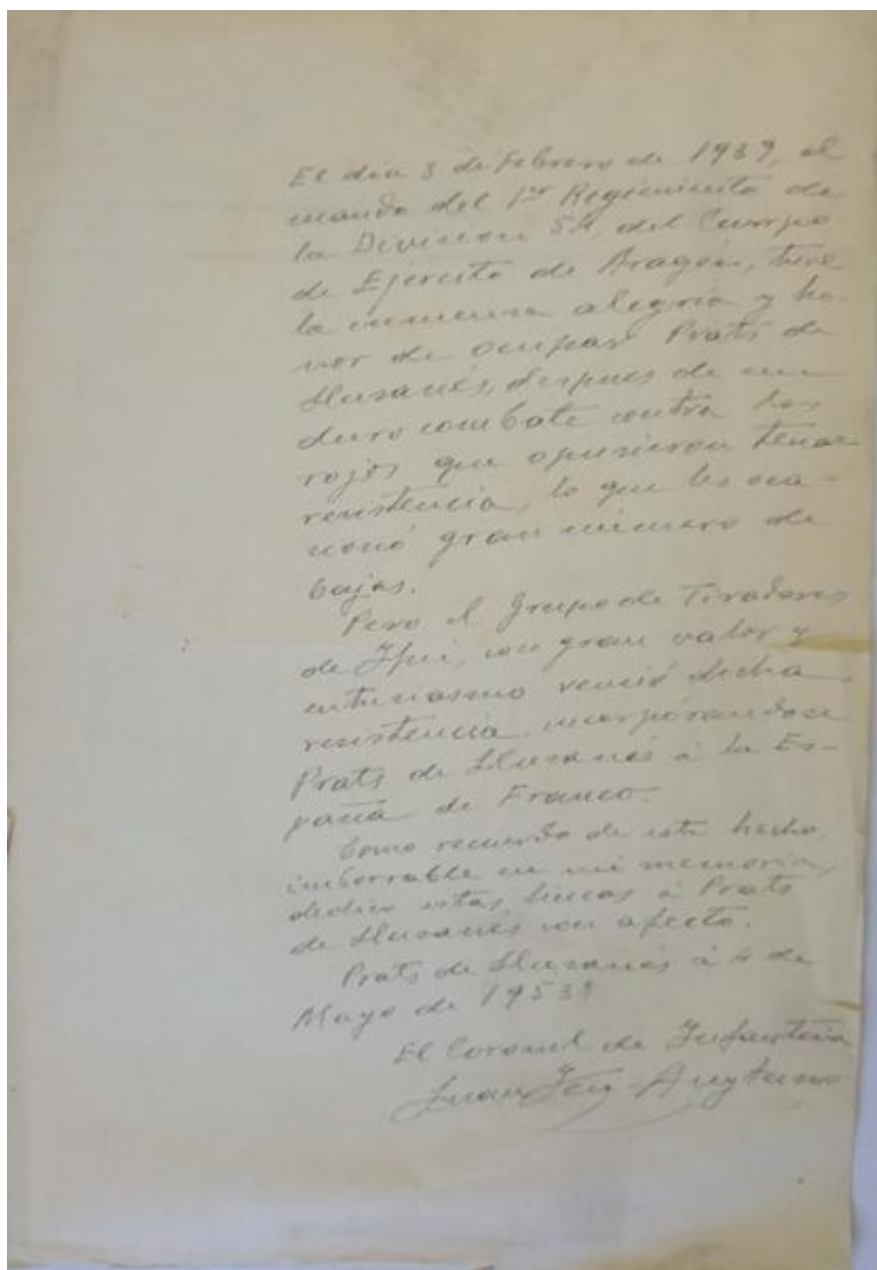 El dia 3 de Febrero de 1939, al
mando del 1er Regimiento de
la Division 51, del Cuerpo
de Ejercito de Aragón, tuve
la inmensa alegria y ho-
nor de ocupar Prats de
Llusanés, despues de un
duro combate contra los
rojos que opusieron tenaz
resistencia, lo que les oca-
sionó gran número de
bajas.
Pero el Grupo de Tiradores
de Ifni, con gran valor y
entusiasmo venció dicha
resistencia incorporandose
Prats de Llusanés á la Es-
paña de Franco.-
Como recuerdo de este hecho,
imborrable en mi memoria,
dedico estas lineas á Prats
de Llusanés con afecto.
Prats de Llusanés á 4 de
Mayo de 1953
El Coronel de Infanteria
Juan